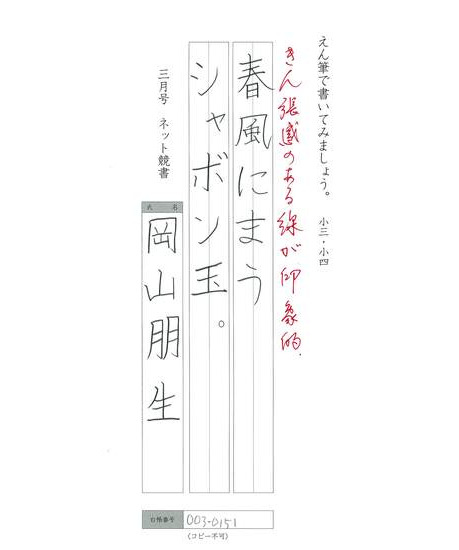 えん筆で書いてみましょう。 小三・小四
きん張感のある線が印象的.
春風にまう
シャボン玉。
三月号 ネット競書
氏 名
岡山朋生
白帳番号 003-0151
(コピー不可)